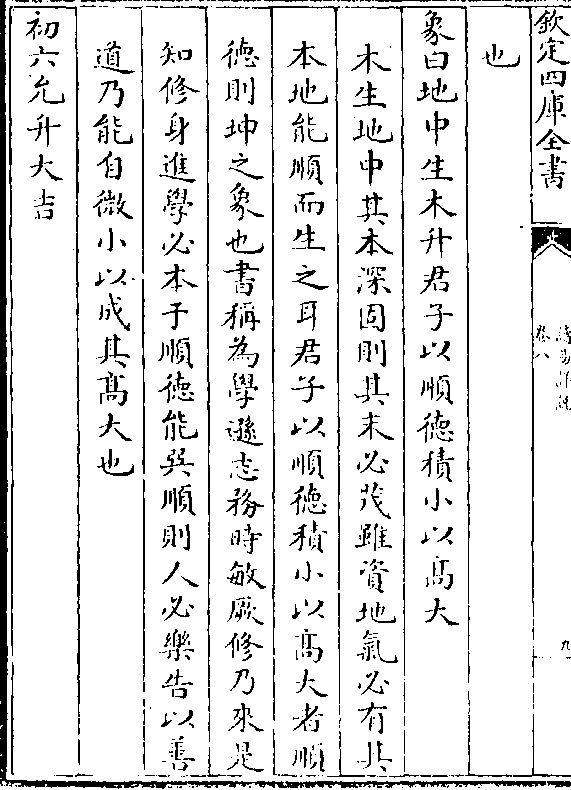 欽定四庫全書
讀易詳說
卷八
九
也
象曰地中生木升君子以順德積小以高大
木生地中其本深固則其末必茂雖資地氣必有其
本地能順而生之耳君子以順德積小以高大者順
德則坤之象也書稱為學遜志務時敏厥修乃來是
知修身進學必本于順德能巽順則人必樂告以善
道乃能自微小以成其高大也
初六允升大吉